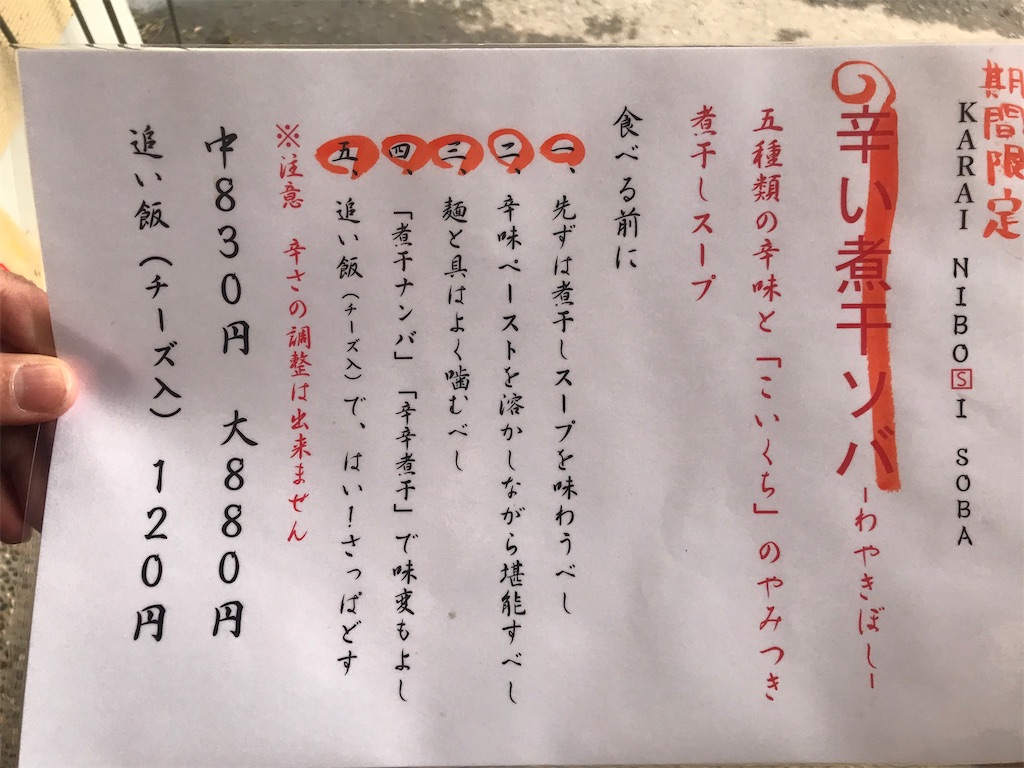 期間限定
KARAI NIBOSI SOBA
の辛い煮干ソバ-わやきぼし-
五種類の辛味と「こいくち」のやみつき
煮干しスープ
食べる前に
一、先ずは煮干しスープを味わうべし
二、辛味ペーストを溶かしながら堪能すべし
三、麺と具はよく噛むべし
四、「煮干ナンバ」「辛辛煮干」で味変もよし
五、追い飯(チーズ入)で、はい!さっぱどす
※注意 辛さの調整は出来ません
中830円 大880円
追い飯(チーズ入) 120円